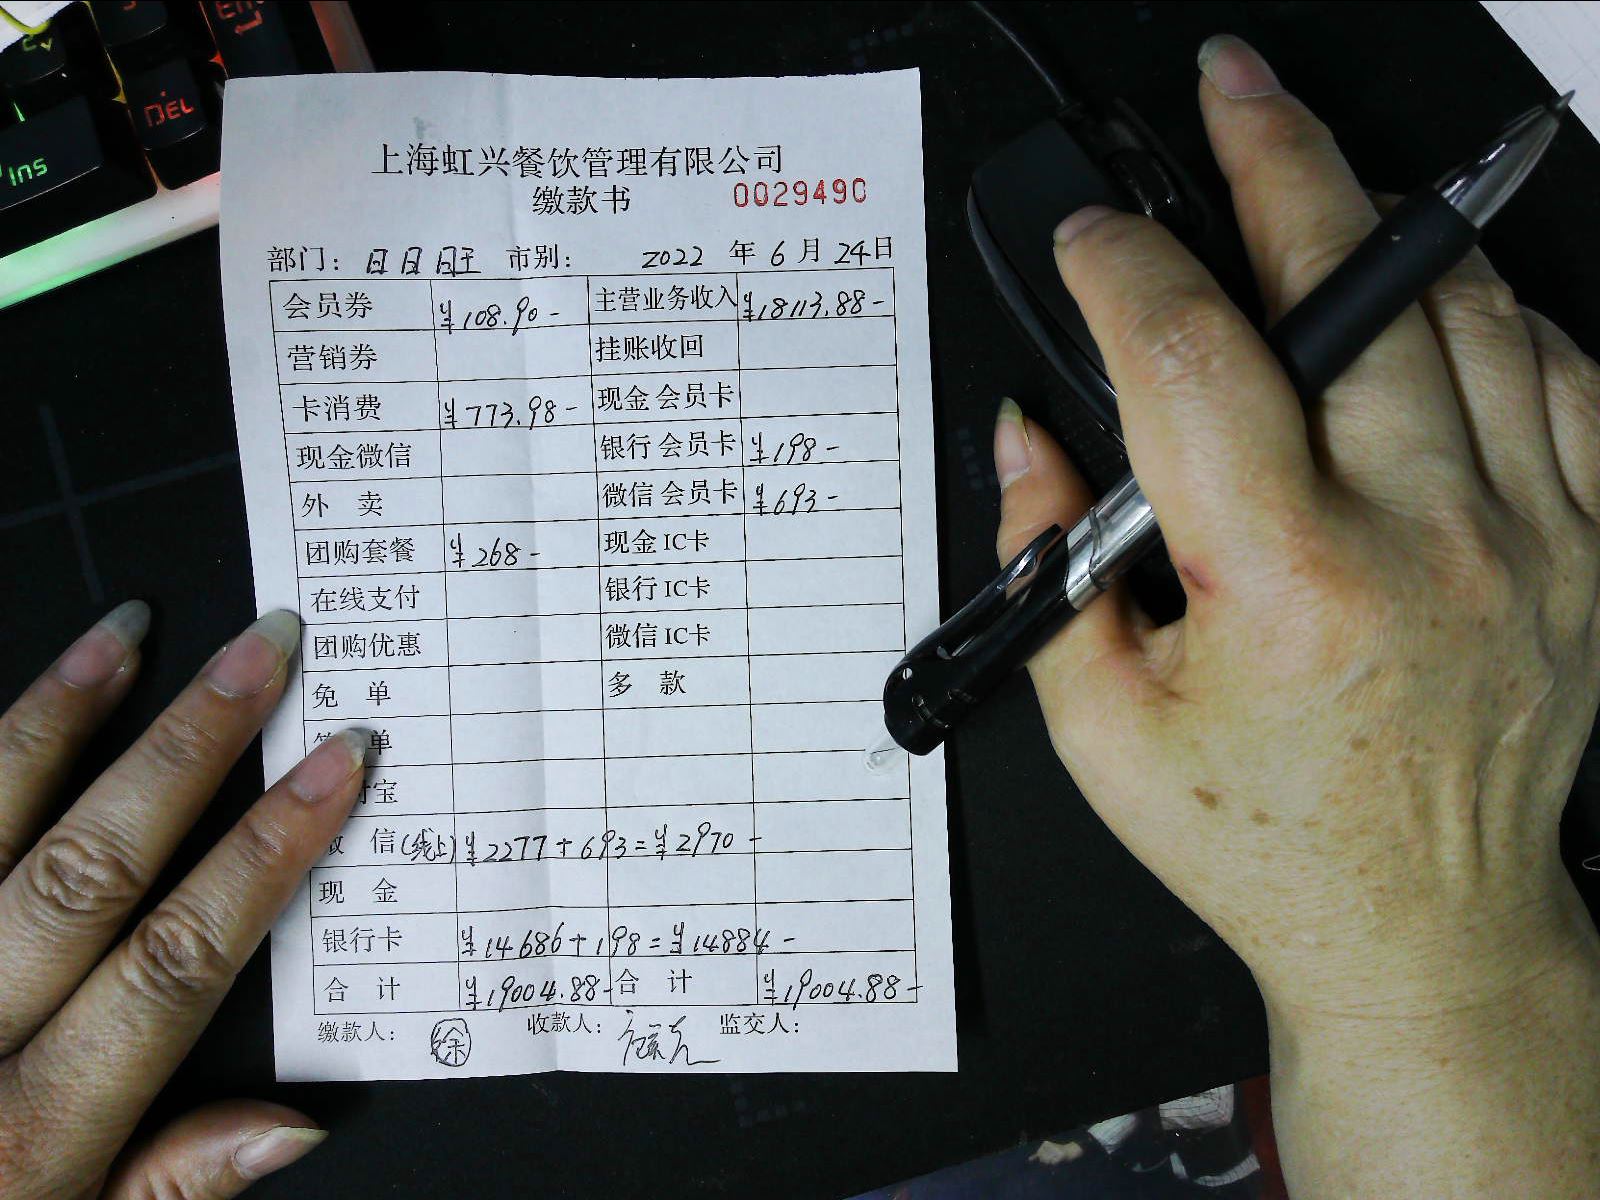 Ins
DEL
上海虹兴餐饮管理有限公司
缴款书 0029490
部门: 日日旺 市别: 2022 年 6 月 24日
会员券 ¥108.90- 主营业务收入 ¥18113.88-
营销券 挂账收回
卡消费 ¥773.98- 现金会员卡
现金微信 银行会员卡 ¥198-
外 卖 微信会员卡 ¥693-
团购套餐 ¥268- 现金IC卡
在线支付 银行IC卡
团购优惠 微信IC卡
免 单 多 款
单
付宝
微 信(线上) ¥2277+693=¥2970-
现 金
银行卡 ¥14686+198=¥14884-
合 计 ¥19004.88- 合 计 ¥19004.88-
缴款人: 徐 收款人: 监交人: